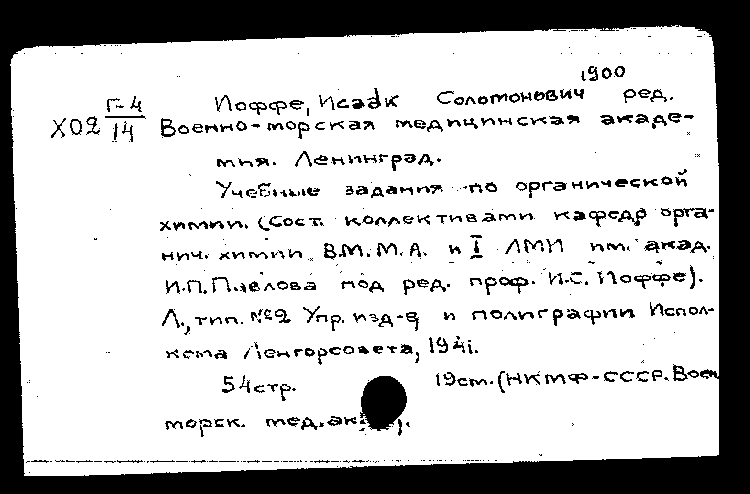 1900
Г-4 Иоффе, Исаак Соломонович ред.
Х02 14 Военно-морская медицинская акаде-
мия. Ленинград.
Учебные задания по органической
химии. (Сост. коллективами кафедр орга-
нич. химии В.М.М.А. и I ЛМИ им. акад.
И.П.Павлова под ред. проф. И.С. Иоффе).
Л., тип. №2 Упр. изд-в и полиграфии Испол-
кома Ленгорсовета, 1941.
54стр. 19см. (НКМФ-СССР. Воен
морск. мед.